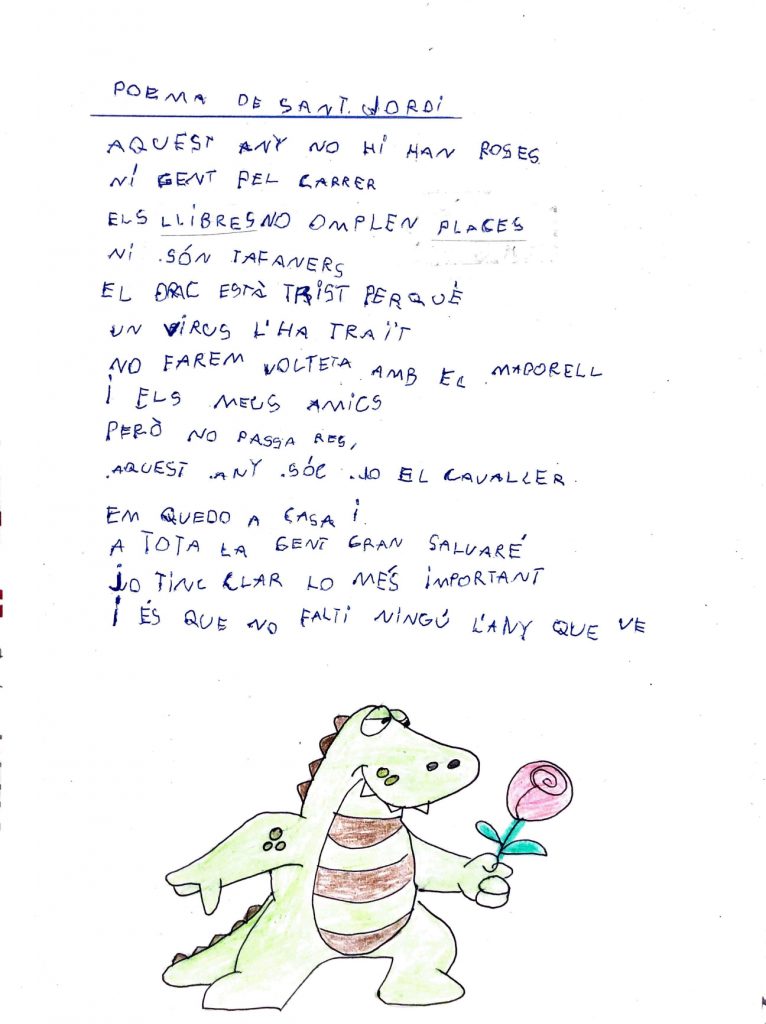 POEMA DE SANT JORDI
AQUEST ANY NO HI HAN ROSES
NI GENT PEL CARRER
ELS LLIBRES NO OMPLEN PLACES
NI SÓN TAFANERS
EL DRAC ESTÀ TRIST PERQUÈ
UN VIRUS L'HA TRAÏT
NO FAREM VOLTETA AMB EL MADORELL
I ELS MEUS AMICS
PERÒ NO PASSA RES,
AQUEST ANY SÓC JO EL CAVALLER.
EM QUEDO A CASA I
A TOTA LA GENT GRAN SALVARÉ
JO TINC CLAR LO MÉS IMPORTANT
I ÉS QUE NO FALTI NINGÚ L'ANY QUE VE